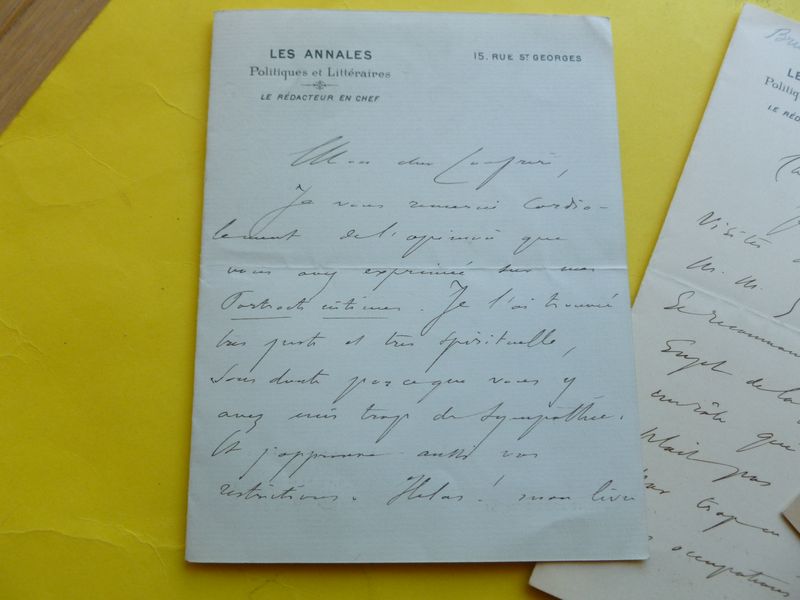 LES ANNALES
Politiques et Littéraires
LE RÉDACTEUR EN CHEF
15, RUE ST GEORGES
Mon cher Confrère,
Je vous remercie cordia-
lement de l'opinion que
vous avez exprimée sur mes
Portraits intimes. Je l'ai trouvée
très juste et très spirituelle,
sans doute parce que vous y
avez mis trop de sympathie.
Et j'approuve aussi vos
restrictions. Hélas! mon livre
LE
Politiq
LE RÉDA
Visites
M. M.
Se recommand
Sujet de la
que
plait pas
trop
occupations